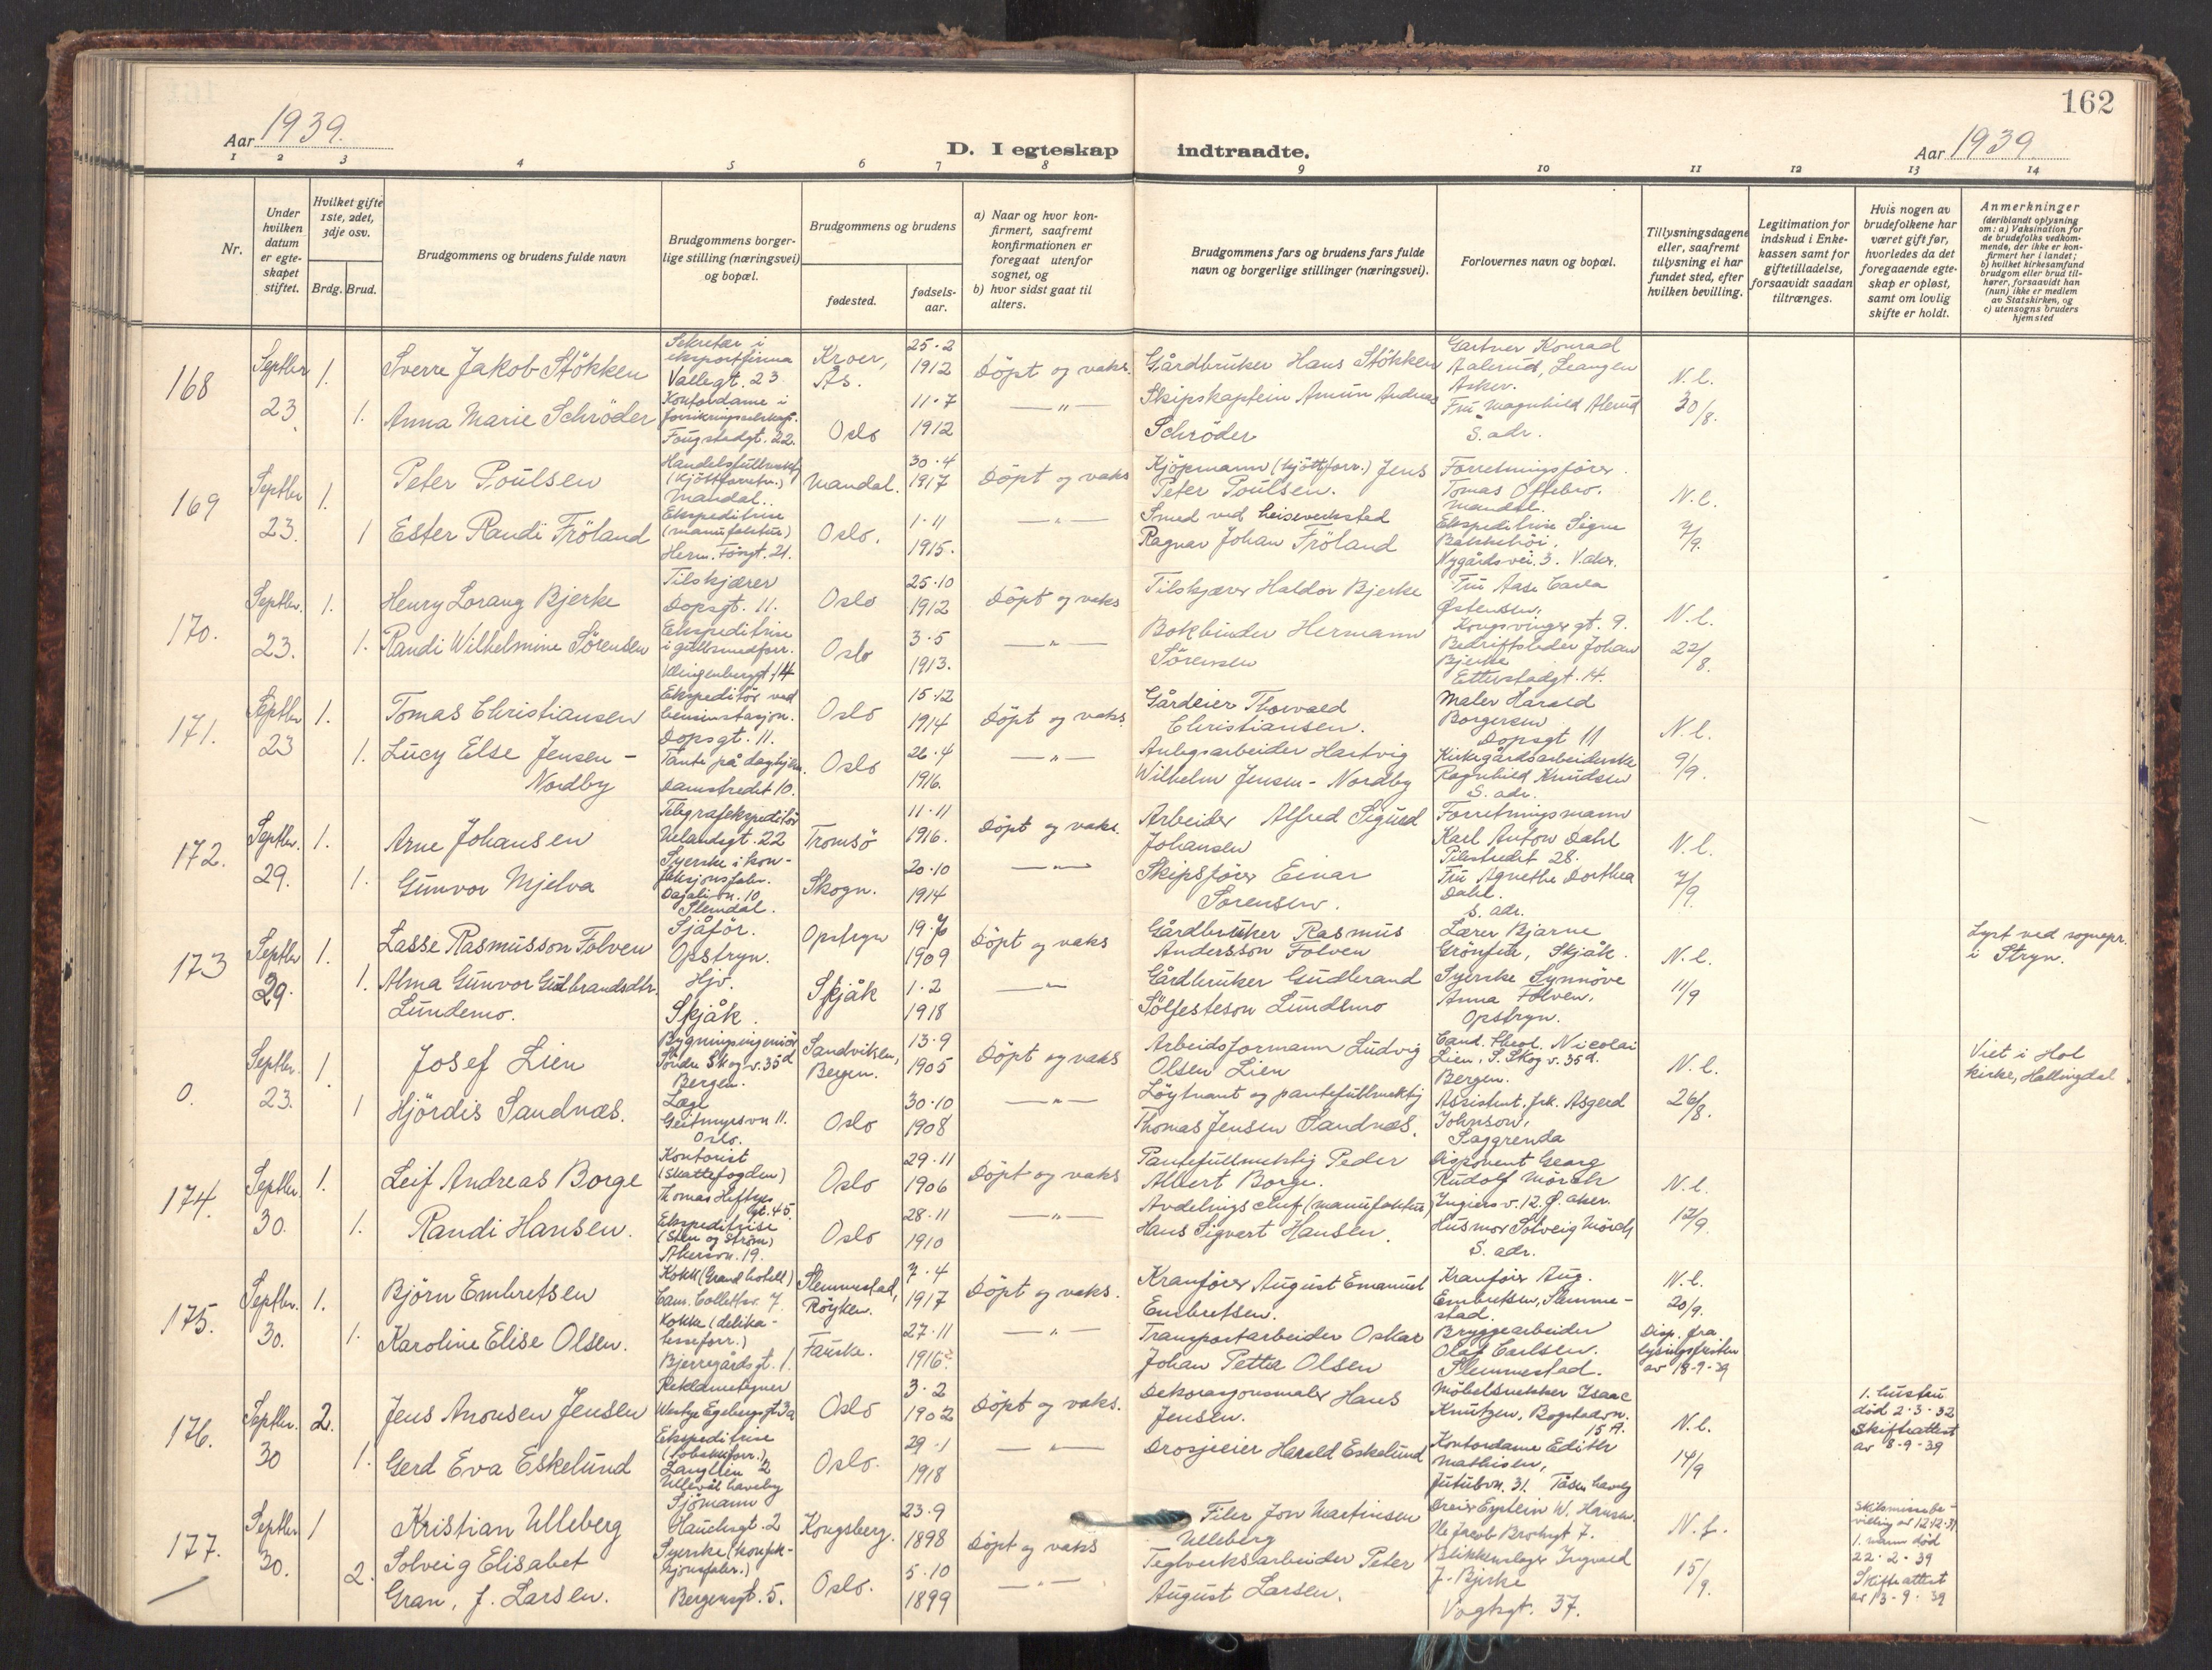 162
Aar 1939.
D. I egteskap indtraadte.
Aar 1939
1 2 3 4 5 6 7 8 9 10 11 12 13 14
Nr.
Under
hvilken
datum
er egte-
skapet
stiftet.
Hvilket gifte
1ste, 2det,
3dje osv.
Brdg. Brud.
Brudgommens og brudens fulde navn
Brudgommens borger-
lige stilling (næringsvei)
og bopæl.
Brudgommens og brudens
fødested.
fødsels-
aar.
a) Naar og hvor kon-
firmert, saafremt
konfirmationen er
foregaat utenfor
sognet, og
b) hvor sidst gaat til
alters.
Brudgommens fars og brudens fars fulde
navn og borgerlige stillinger (næringsvei).
Forlovernes navn og bopæl.
Tillysningsdagene
eller, saafremt
tillysning ei har
fundet sted, efter
hvilken bevilling.
Legitimation for
indskud i Enke-
kassen samt for
giftetilladelse,
forsaavidt saadan
tiltrænges.
Hvis nogen av
brudefolkene har
været gift før,
hvorledes da det
foregaaende egte-
skap er opløst,
samt om lovlig
skifte er holdt.
Anmerkninger
(deriblandt oplysning
om: a) Vaksination for
de brudefolks vedkom-
mende, der ikke er kon-
firmert her i landet;
b) hvilket kirkesamfund
brudgom eller brud til-
hører, forsaavidt han
(hun) ikke er medlem
av Statskirken, og
c) utensogns bruders
hjemsted
168
Septbr
23.
1.
Sverre Jakob Stökken
Sekretær i
eksportfirma
Vallegt. 23
Kroer,
Ås.
25.2
1912
Döpt og vaks.
Gårdbruker Hans Stökken
Gartner Konrad
Aalerud, Leangen
Asker.
N.l.
30/8.
1.
Anna Marie Schröder
Kontordame i
forsikringsselskap.
Fougstadgt. 22.
Oslo
11.7
1912
—"—
Skipskaptein Amun Andreas
Schröder
Fru Magnhild Alerud
S. adr.
169
Septbr
23.
1.
Peter Poulsen
Handelsfullmektig
(kjöttforretn.)
Mandal.
Mandal.
30.4
1917
Döpt og vaks
Kjöpmann (kjöttforr.) Jens
Peter Poulsen.
Forretningsfører
Tomas Oftebro.
Mandal.
N.l.
7/9.
1
Ester Randi Fröland
Ekspeditrise
(manufaktur)
Herm. Fossgt. 21.
Oslo.
1.11
1915.
—"—
Smed ved heiseverksted
Ragnar Johan Fröland
Ekspeditrise Signe
Bakkehöi,
Nygårdsvei. 3. V. aker.
170.
Septbr.
23.
1.
Henry Lorang Bjerke
Tilskjærer
Dopsgt. 11.
Oslo
25.10
1912
Döpt og vaks
Tilskjærer Haldor Bjerke
Fru Aase Carla
Østensen,
Kongsvingergt. 9.
N.l.
22/8.
1.
Randi Wilhelmine Sörensen
Ekspeditrise
i gullsmedforr.
Klingenberggt. 4
Oslo
3.5
1913.
—"—
Bokbinder Hermann
Sörensen
Bedriftsleder Johan
Bjerke
Etterstadgt. 14.
171.
Septbr
23
1.
Tomas Christiansen
Ekspeditör ved
bensinstasjon.
Dopsgt. 11.
Oslo
15.12
1914
Döpt og vaks.
Gårdeier Thorvald
Christiansen.
Maler Harald
Borgersen
Dopsgt 11
N.l.
9/9.
1.
Lucy Else Jensen –
Nordby
Tante på daghjem.
Damstredet 10.
Oslo
26.4
1916.
—"—
Anlegsarbeider Hartvig
Wilhelm Jensen - Nordby
Kirkegårdsarbeiderske
Ragnhild Knudsen
S. adr.
172.
Septbr.
29.
1.
Arne Johansen
Telegrafekspeditör
Uelandsgt. 22
Tromsö
11.11
1916.
Döpt og vaks.
Arbeider Alfred Sigurd
Johansen
Forretningsmann
Karl Anton Dahl
Pilestredet 28.
N.l.
7/9.
1.
Gunvor Mjelva
Syerske i kon-
feksjonsfabr.
Dagalivn. 10
Slemdal.
Skogn.
20.10
1914
—"—
Skipsfører Einar
Sorensen.
Fru Agnethe Dorthea
Dahl.
S. adr.
173
Septbr
29.
1.
Lasse Rasmusson Folven
Sjåför.
Opstryn.
Opstryn
19.7
1909
Döpt og vaks
Gårdbruker Rasmus
Andersson Folven
Lærer Bjarne
Grönfur, Skjåk.
N.l.
11/9
Lyst ved sognepr.
i Stryn.
1.
Alma Gunvor Gudbrandsdtr.
Lundemo.
Hjv.
Skjåk.
Skjåk
1.2
1918
—"—
Gårdbruker Gudbrand
Sölfesteson Lundemo
Syerske Synnöve
Anna Folven.
Opstryn.
0.
Septbr.
23.
1.
Josef Lien
Bygningsingeniör
Söndre Skogv. 35d
Bergen.
Sandviken,
Bergen.
13.9
1905
Döpt og vaks
Arbeidsformann Ludvig
Olsen Lien
Cand. theol. Nicolai
Lien, S. Skogv. 35d.
Bergen.
N.l.
26/8.
Viet i Hol
kirke, Hallingdal
1
Hjördis Sandnæs.
Læge
Geitmyrsvn 11.
Oslo.
Oslo
30.10
1908
—"—
Löytnant og pantefullmektig
Thomas Jensen Sandnæs.
Assistent. frk. Asgerd
Johnson,
Saggrenda
174.
Septbr.
30.
1.
Leif Andreas Borge
Kontorist
(Skattefogden)
Thomas Heftyes
gt. 45.
Oslo
29.11
1906
Döpt og vaks
Pantefullmektig Peder
Albert Borge.
Disponent Georg
Rudolf Mörch
Ingiers v. 12. Ø. aker.
N.l.
12/9.
1.
Randi Hansen.
Ekspeditrise
(Sten og Ström)
Akersvn. 19.
Oslo
28.11
1910
—"—
Avdelingschef (manufaktur)
Hans Sigvart Hansen.
Husmor Solveig Mörch
S. adr.
175.
Septbr.
30.
1.
Björn Embretsen
Kokk (Grand hotell)
Cam. Collettsv. 7.
Slemmestad,
Röyken.
7.4
1917
Döpt og vaks.
Kranfører August Emanuel
Embretsen.
Kranfører Aug.
Embretsen, Slemme-
stad.
N.l.
20/9.
Disp. fra
lysingsfristen
av 18-9-39
1.
Karoline Elise Olsen.
Kokke (delika-
tesseforr.)
Bjerregårdsgt. 1.
Fauske.
27.11
1916.
—"—
Transportarbeider Oskar
Johan Petter Olsen
Bryggearbeider
Olaf Carlsen.
Slemmestad.
176.
Septbr.
30
2.
Jens Aronsen Jensen
Reklametegner
Westye Egebergsgt 3a
Oslo
3.2
1902
Döpt og vaks.
Dekorasjonsmaler Hans
Jensen.
Möbelsnekker Isaac
Knutzen, Bogstadvn.
15A.
N.l.
14/9
1. hustru
död 2-3-32
Skifteattest
av 8-9-39
1.
Gerd Eva Eskelund
Ekspeditrise
(tobakkforr.),
Langlien 2
Ullevål haveby
Oslo.
29.1
1918
—"—
Drosjeeier Harald Eskelund
Kontordame Edith
Mathisen,
Jutulvn. 31. Tåsen haveby
177.
Septbr
30.
1
Kristian Ulleberg
Sjömann
Hauchsgt. 2
Kongsberg.
23.9
1898
Döpt og vaks
Filer Jon Martinsen
Ulleberg
W. Hansen.
Ole Jacob Brochsgt 7.
N.f.
15/9.
Skilsmissebe-
villing av 12.12.31
1. mann död
22-2-39
Skifteattest
av 13-9-39
2.
Solveig Elisabet
Gran, f. Larsen.
Syerske (konfek-
sjonsfabr.)
Bergensgt. 5.
Oslo.
5.10
1899
—"—
Teglverksarbeider Peter
August Larsen.
Blikkenslager Ingvald
J. Bjerke
Vogtsgt. 37.